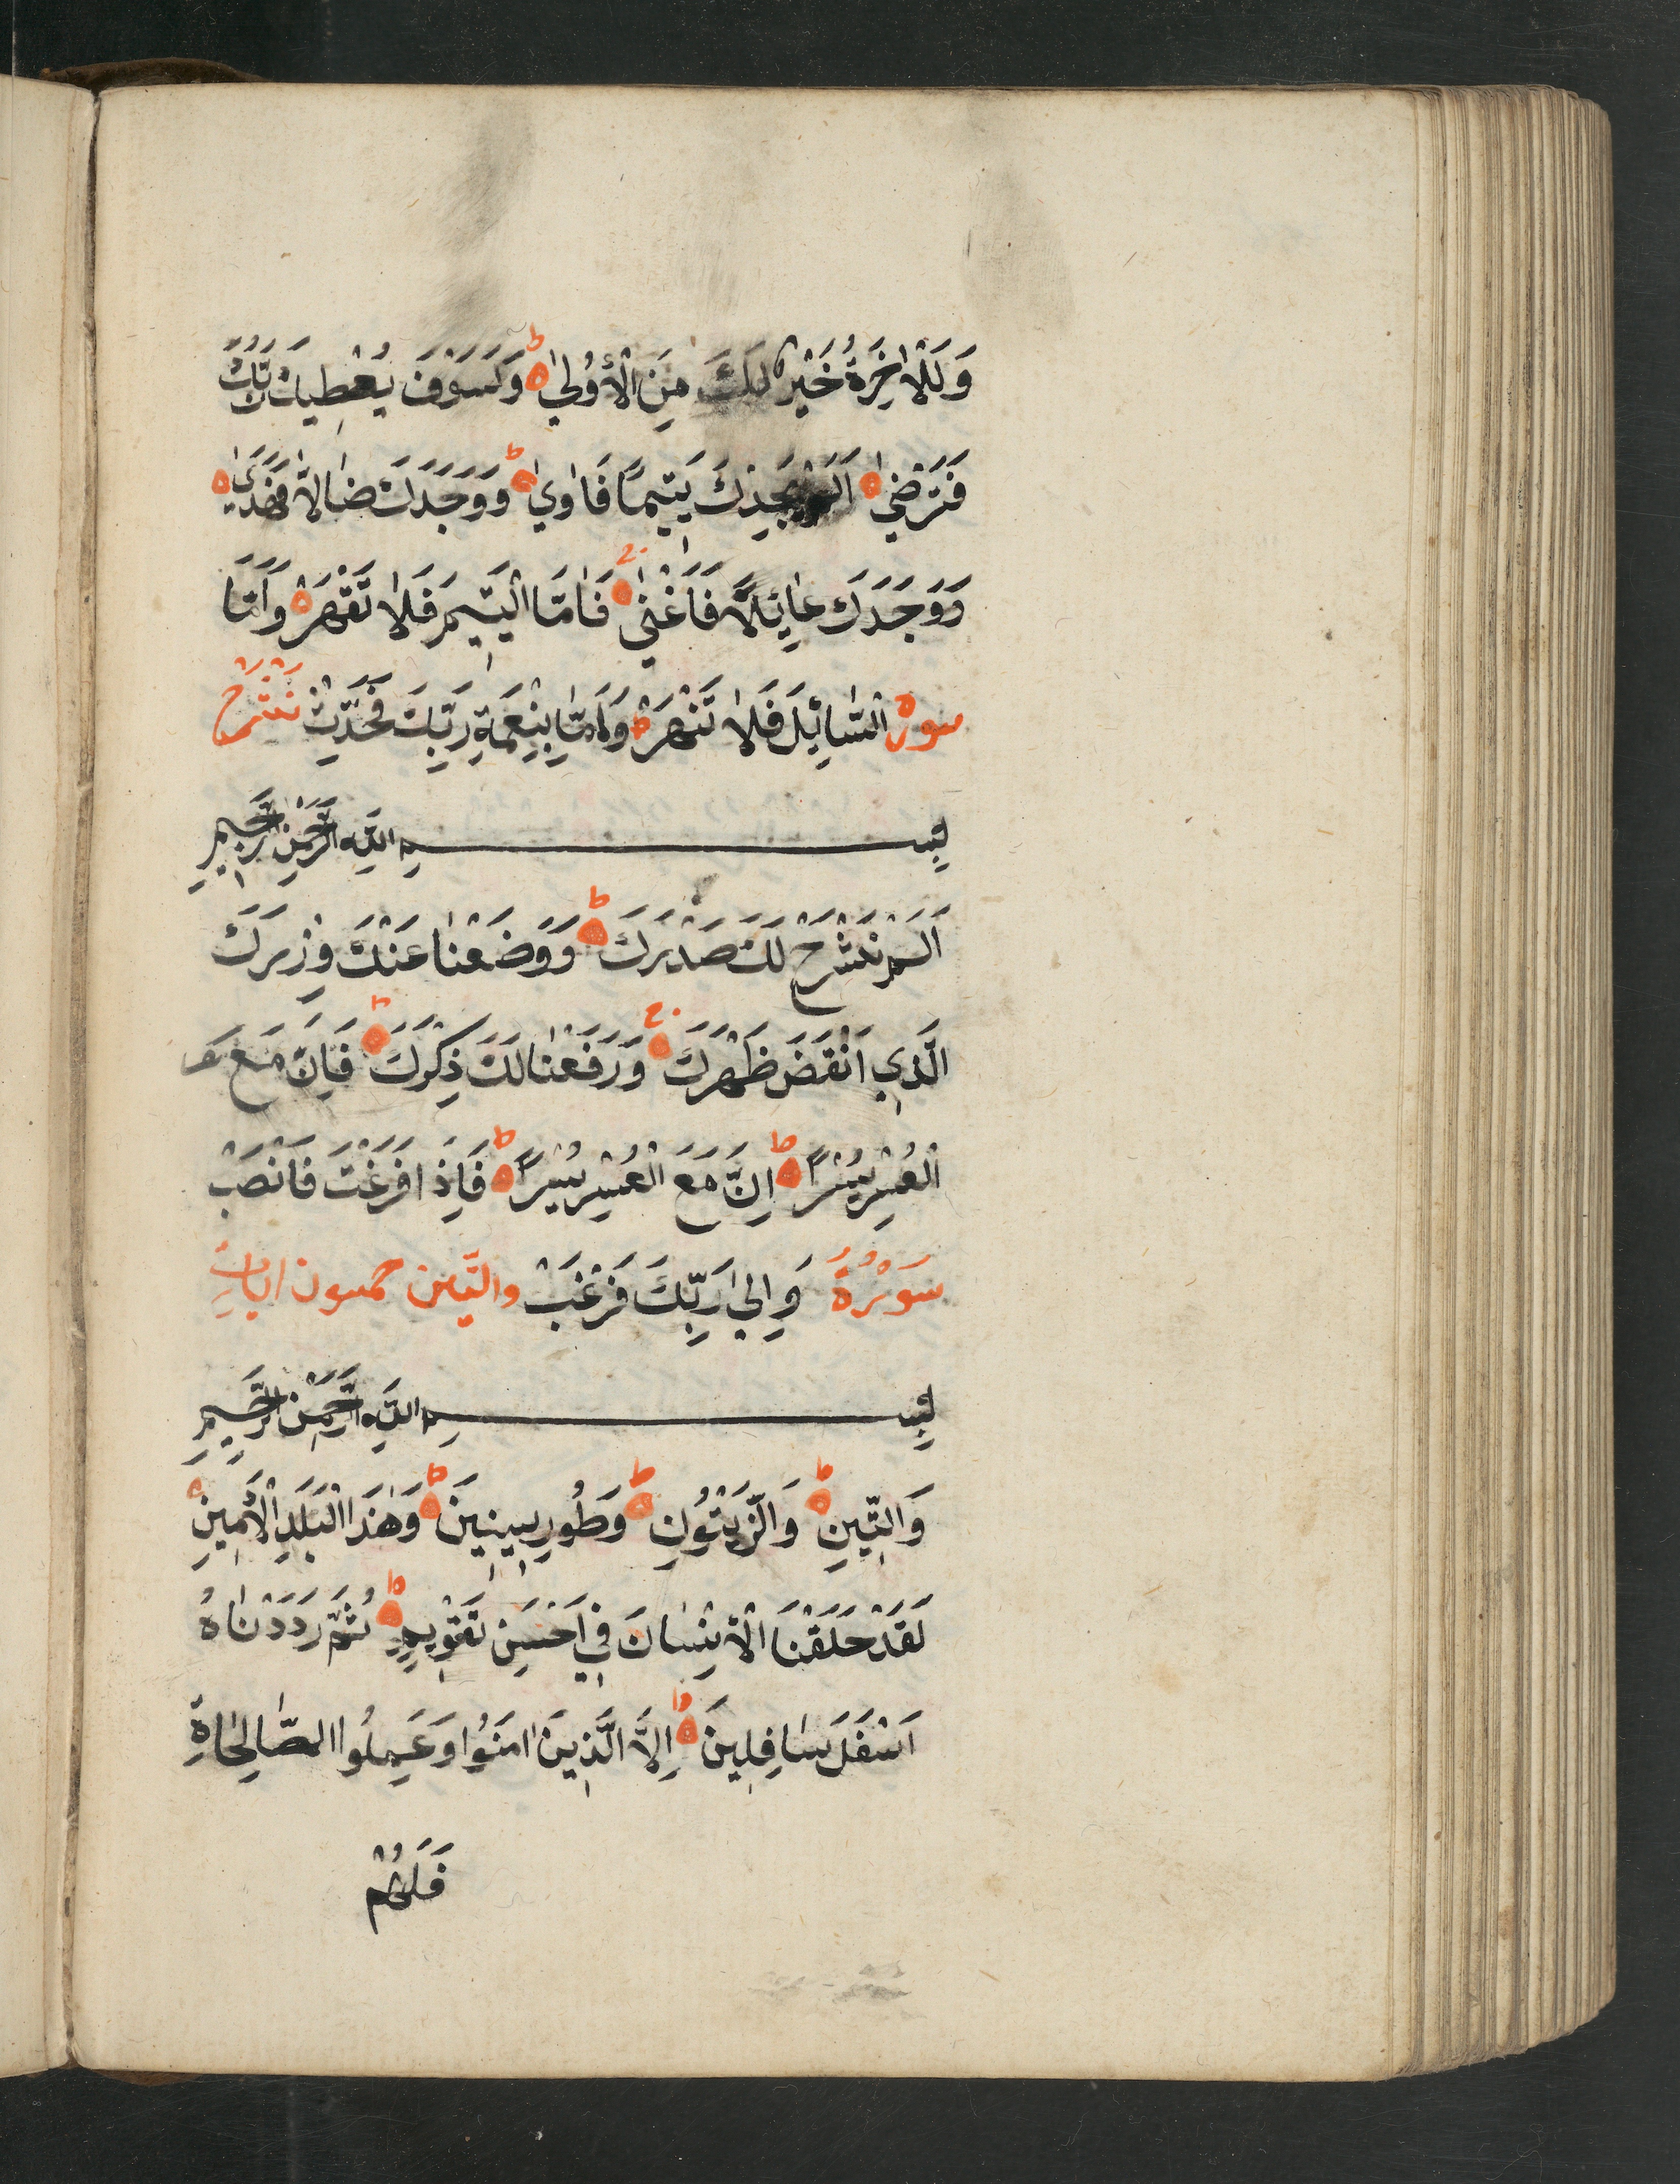 وَلَلْاٰخِرَةُ خَيْرٌ لَكَ مِنَ الْأُولٰي ۵ ط وَلَسَوْفَ يُعْطِيكَ رَبُّكَ
فَتَرْضٰي ۵ اَلَمْ يَجِدْكَ يَتِيمًا فَاٰوٰي ۵ ط وَوَجَدَكَ ضٰالاًّ فَهَدَيٰ ۵
وَوَجَدَكَ عٰايِٕلاً فَاَغْنٰي ۵ ج فَاَمَّا الْيَتِيمَ فَلاٰ تَقْهَرْ ۵ وَاَمَّا
سورة السّٰايِٕلَ فَلاٰ تَنْهَرْ ۵ وَاَمّٰا بِنِعْمَةِ رَبِّكَ فَحَدِّثْ نَشْرَحْ
بِسْمِ اللّٰهِ الرَّحْمٰنِ الرَّحِيمِ
اَلَمْ نَشْرَحْ لَكَ صَدْرَكَ ۵ ط وَوَضَعْنٰا عَنْكَ وِزْرَكَ
الَّذِي اَنْقَضَ ظَهْرَكَ ۵ ج وَرَفَعْنٰا لَكَ ذِكْرَكَ ۵ ط فَاِنَّ مَعَ
الْعُسْرِ يُسْرًا ۵ ط اِنَّ مَعَ الْعُسْرِ يُسْرًا ۵ ط فَاِذَا فَرَغْتَ فَانْصَبْ
سَوْرَةُ وَاِلٰي رَبِّكَ فَرْغَبْ والتّين خمسون ايات
بِسْمِ اللّٰهِ الرَّحْمٰنِ الرَّحِيمِ
وَالتِّينِ ۵ ط وَالزَّيْتُونِ ۵ ط وَطُورِ سِينِينَ ۵ ط وَهٰذَا الْبَلَدِ الْاَمِينِ ۵
لَقَدْ خَلَقْنَا الْاِنْسٰانَ فِي اَحْسَنِ تَقْوِيمٍ ۵ ط ثُمَّ رَدَدْنٰاهُ
اَسْفَلَ سٰافِلِينَ ۵ ط اِلاَّ الَّذِينَ اٰمَنُوا وَعَمِلُوا الصّٰالِحٰاةِ
فَلَهُمْ